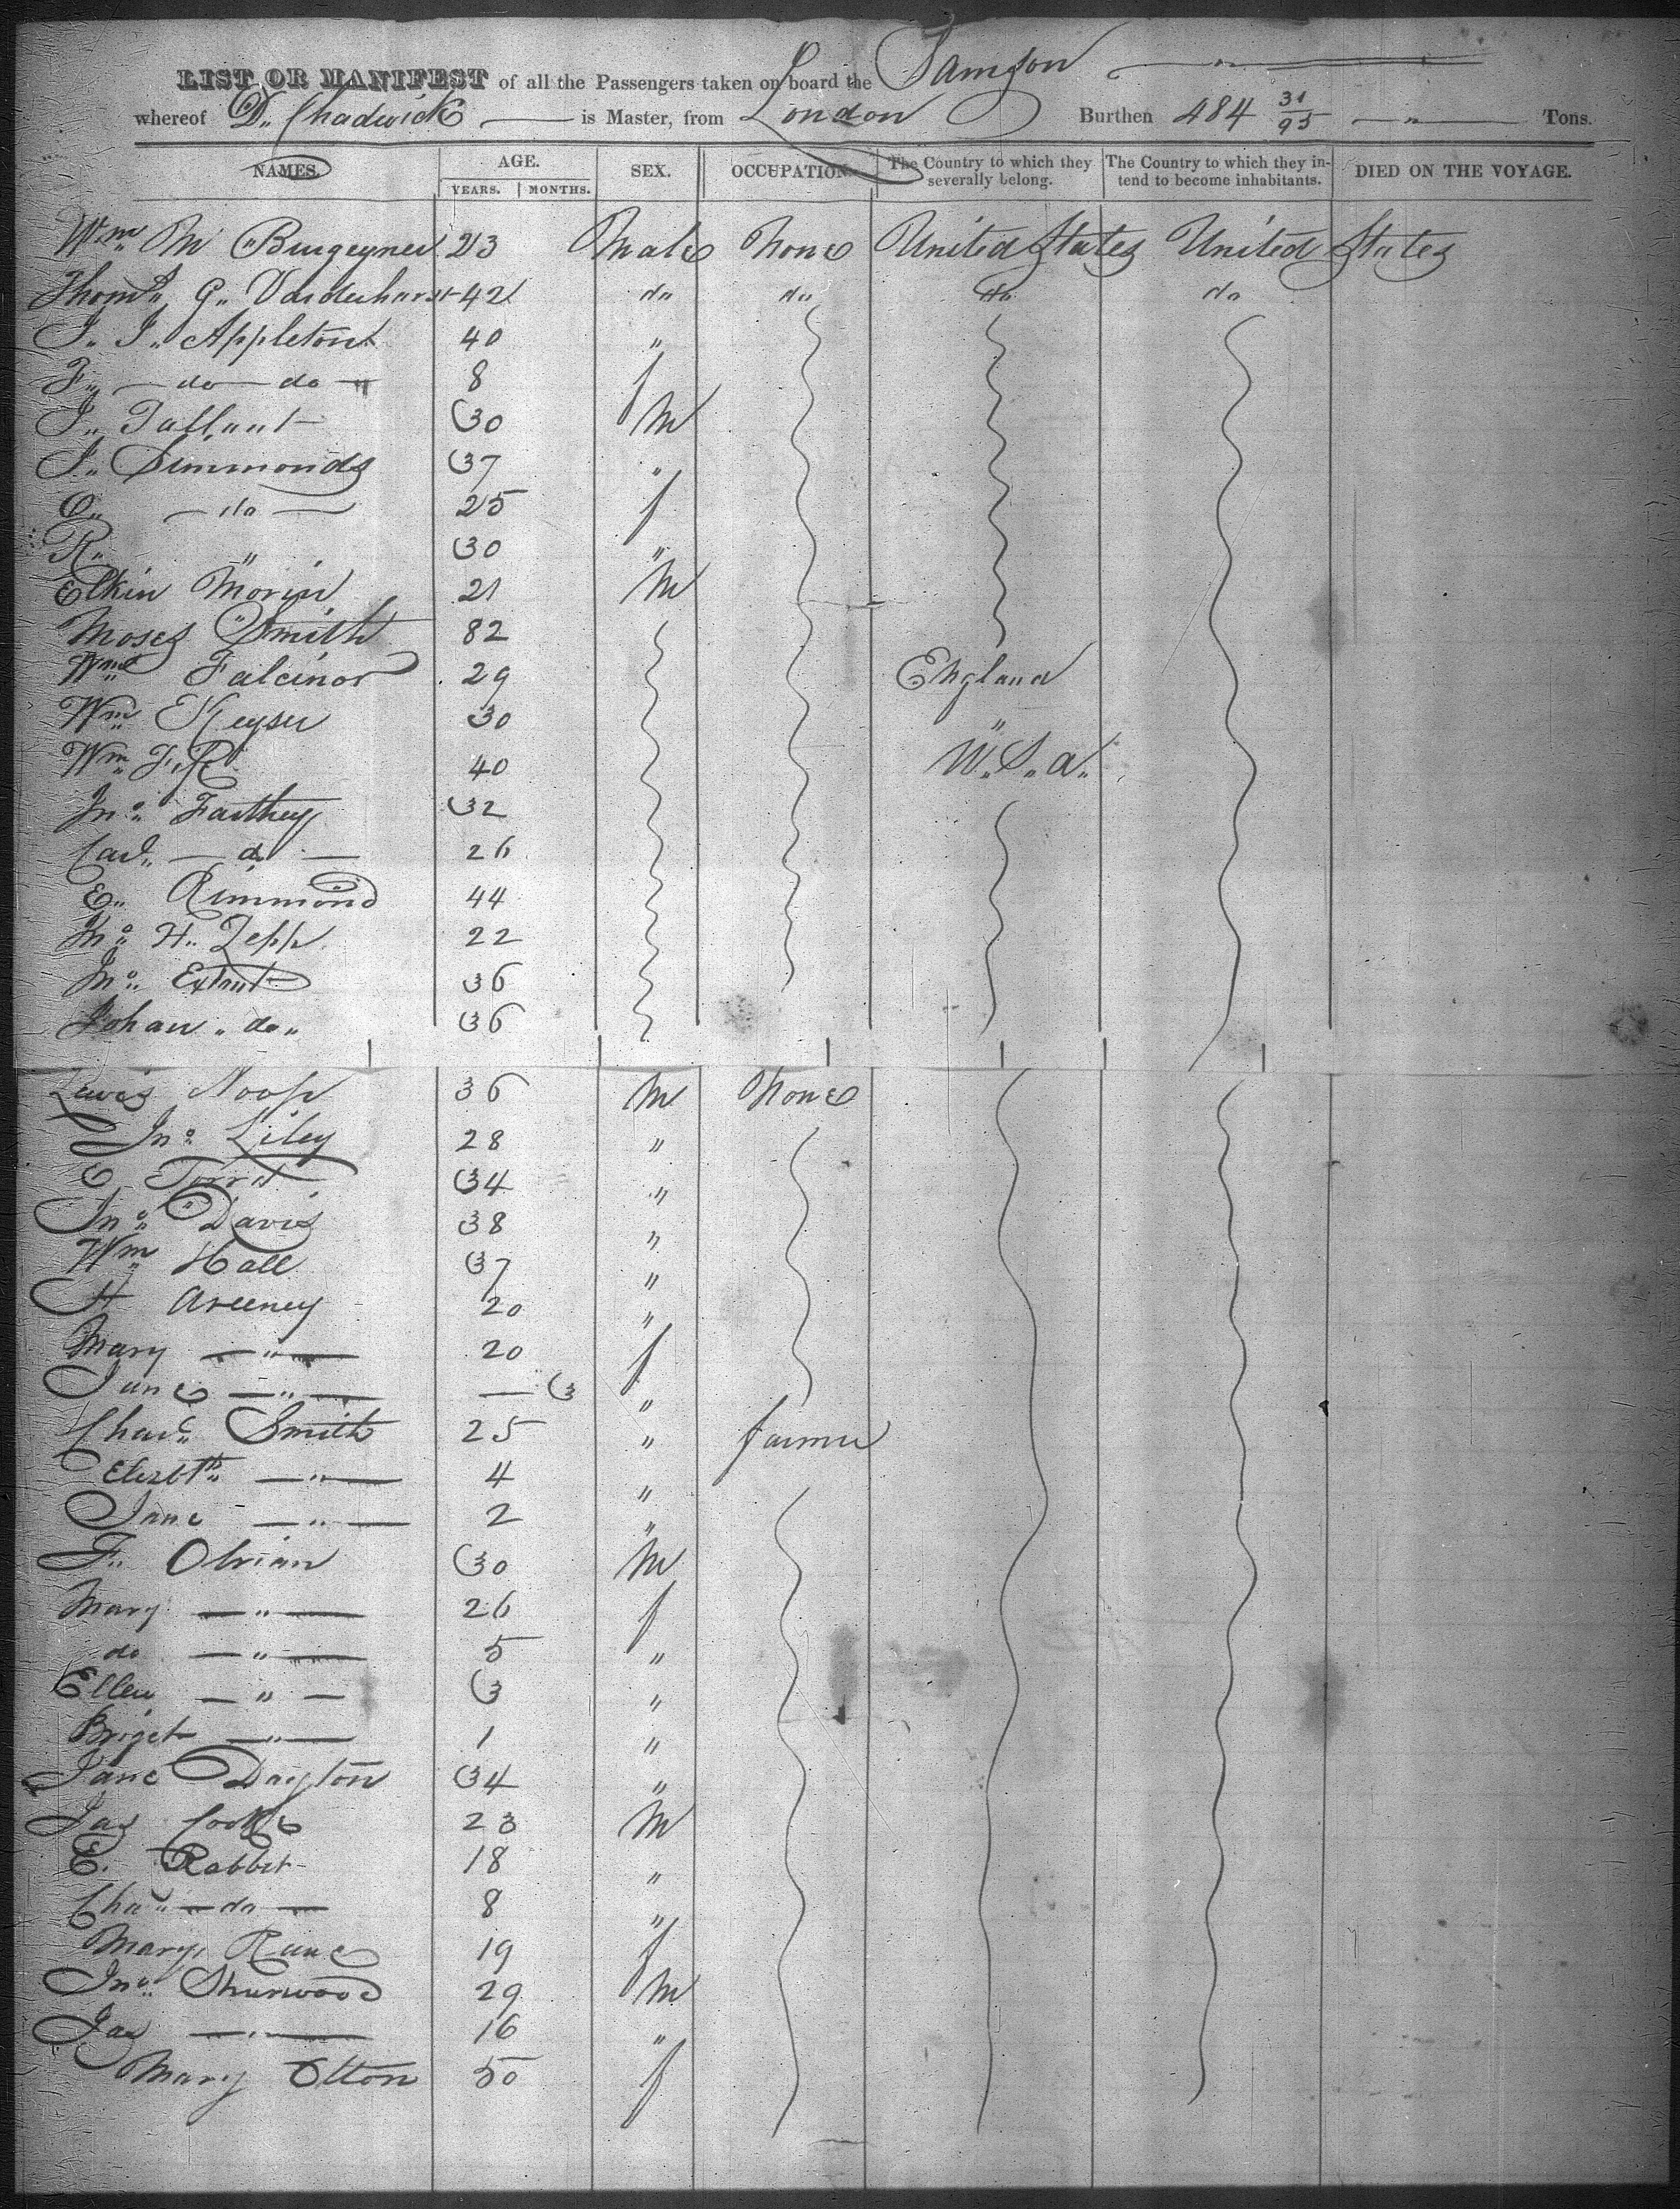 LIST OR MANIFEST of all the Passengers taken on board the Samson
whereof D. Chadwick is Master, from London Burthen 484 31/95 Tons.
NAMES. AGE. SEX. OCCUPATION. The Country to which they severally belong. The Country to which they intend to become inhabitants. DIED ON THE VOYAGE.
YEARS. MONTHS.
Wm M Burgeyne 23 Male None United States United States
Thoms G. Vanderhurst 42 do do do do
J. J. Appleton 40 "
F. do do 8 f
J. Tallant 30 M
J. Simmonds 37 "
C. do 25 f
R. " 30 "
Elkin Morin 21 M
Moses Smith 82
Wm Falcinor 29 England
Wm Keyser 30 "
Wm J. R. 40 U.S.a.
Jno Farthey 32
Carl. do 26
E. Rimmond 44
Jno H. Zepp 22
Jno Extant 36
Johan do 36
Lewis Noop 36 M None
Jno Liley 28 "
C Torrd 34 "
Jno Davis 38 "
Wm Hall 37 "
H Areeney 20 "
Mary " 20 f
Jane " — 3 "
Chas Smith 25 " farmer
Elizbth " 4 "
Jane " 2 "
F. Obrian 30 M
Mary " 26 f
do " 5 "
Ellen " 3 "
Briget " 1 "
Jane Dayton 34 "
Jas Cooke 23 M
E. Rabbit 18 "
Chas do 8 "
Mary Rane 19 f
Jno Shurwood 29 M
Jas " 16 "
Mary Otton 50 f